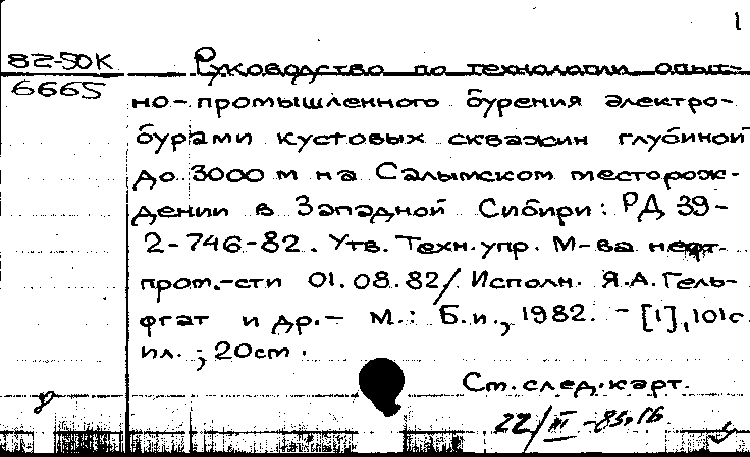 1
82-50К
6665
Руководство по технологии опыт-
но-промышленного бурения электро-
бурами кустовых скважин глубиной
до 3000 м на Салымском месторож-
дении в Западной Сибири: РД 39-
2-746-82. Утв. Техн. упр. М-ва нефт.
пром.-сти 01.08.82/ Исполн. Я.А. Гель-
фгат и др.- М.: Б.и., 1982. - [1], 101с
ил.; 20см.
См. след. карт.
22/III-83, 16